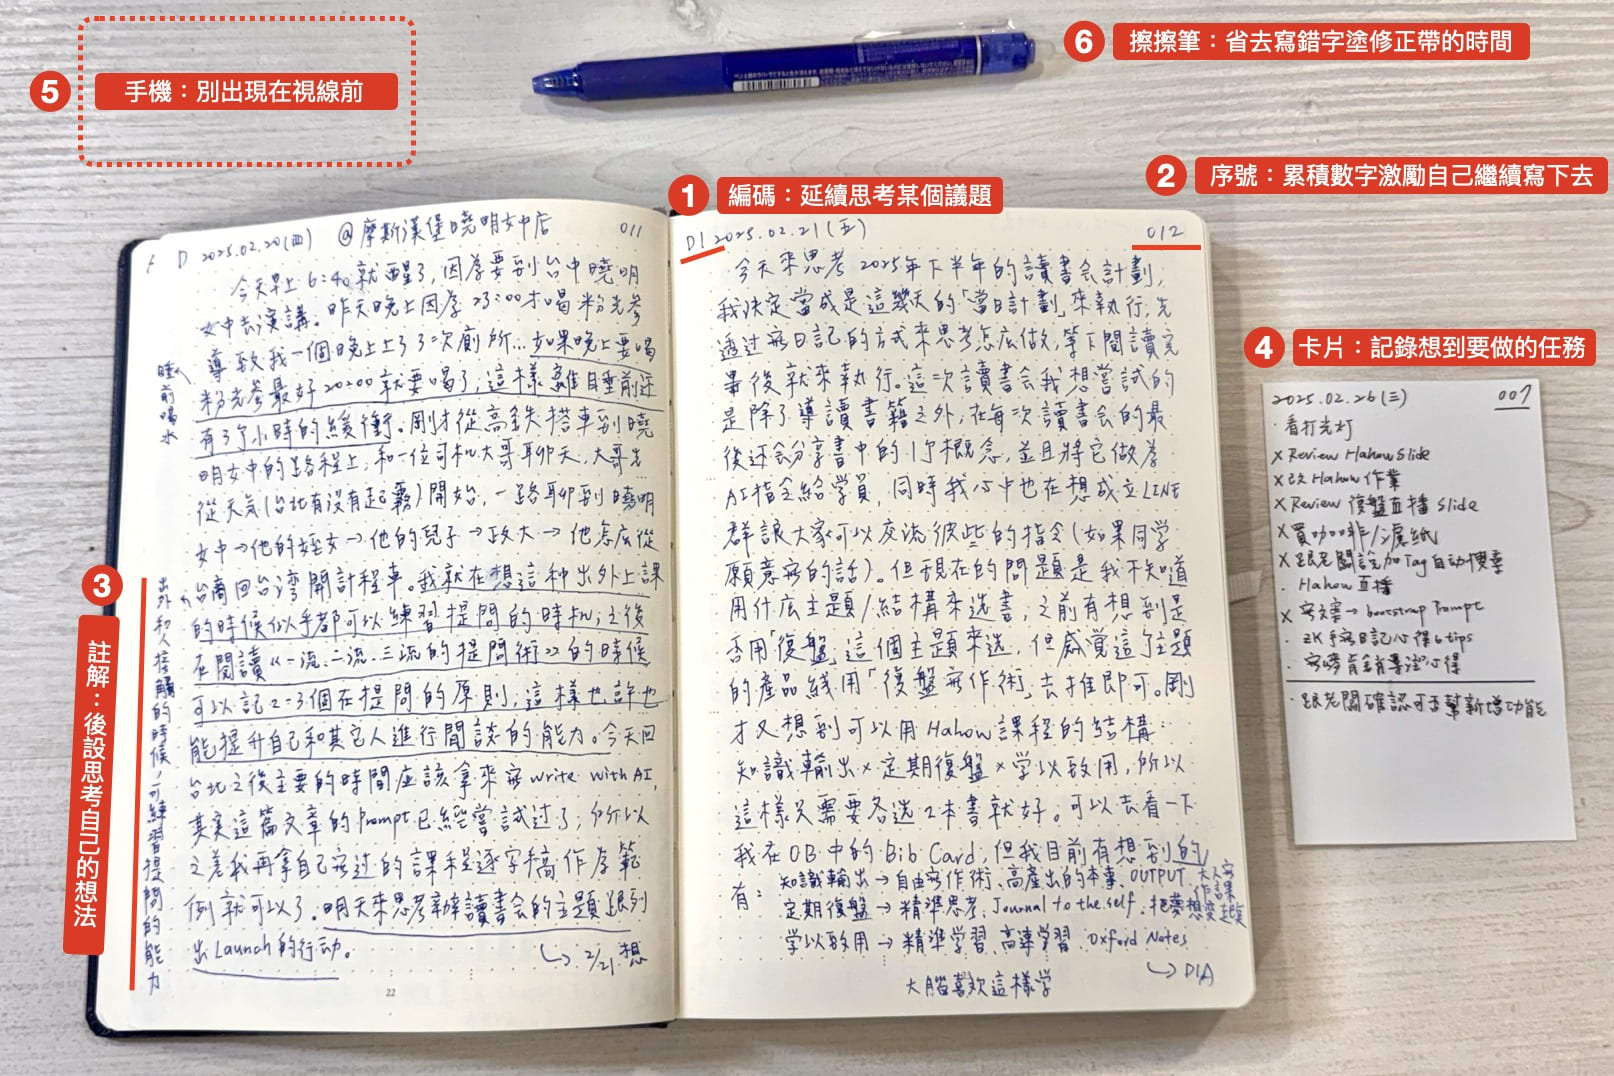 5 手機：別出現在視線前
6 擦擦筆：省去寫錯字塗修正帶的時間
1 編碼：延續思考某個議題
2 序號：累積數字激勵自己繼續寫下去
4 卡片：記錄想到要做的任務
3 註解：後設思考自己的想法
D 2025.02.20(四) @摩斯漢堡曉明女中店 011
今天早上6:40就醒了，因為要到台中曉明
女中去演講。昨天晚上因為23:00才喝粉光參
導致我一個晚上上了3次廁所…如果晚上要喝
粉光參最好20:00就要喝了，這樣離睡前還
有3個小時的緩衝。剛才從高鐵搭車到曉
明女中的路程上，和一位司机大哥聊天，大哥先
從天氣(台北有沒有起霧)開始，一路聊到曉明
女中→他的姪女→他的兒子→政大→他怎么從
台商回台湾開計程車。我就在想這种出外上課
的時候似乎都可以練習提問的時机；之後
在閱讀《一流、二流、三流的提問術》的時候
可以記2-3個在提問的原則，這樣也許也
能提升自己和其它人進行閒談的能力。今天回
台北之後主要的時間应該拿來寫write with AI,
其实這篇文章的Prompt已經嘗試过了，所以
之差我再拿自己寫过的課程逐字稿作為範
例就可以了。明天來思考辦讀書会的主題跟列
出Launch的行动。
↳ 2/21 想
睡前喝水
出外和人接觸的時候，可練習提問的能力
22
D1 2025.02.21(五) 012
今天來思考2025年下半年的讀書会計劃，
我決定當成是這幾天的「當日計劃」來執行，先
透过寫日記的方式來思考怎么做，等下閱讀完
畢後就來執行。這次讀書会我想嘗試的
是除了導讀書籍之外，在每次讀書会的最
後还会分享書中的1个概念，並且將它做為
AI指令給學員，同時我心中也在想成立LINE
群讓大家可以交流彼此的指令(如果同学
願意寫的話)。但現在的問題是我不知道
用什么主題/結構來选書，之前有想到是
否用「復盤」這個主題來选，但感覚這个主題
的產品线用「復盤寫作術」去推即可。剛
才又想到可以用Hahow課程的結構：
知識輸出×定期復盤×学以致用，所以
這樣只需要各选2本書就好。可以去看一下
我在OB中的Bib Card，但我目前有想到的
有：知識輸出→自由寫作術、高產出的本事、OUTPUT
定期復盤→精準思考、Journal to the self、把夢想變
学以致用→精準学習、高速学習、Oxford Notes
大腦喜欢這樣学
↳ D1A
2025.02.26(三) 007
·看打光灯
×Review Hahow Slide
×改Hahow作業
×Review 復盤直播 Slide
×買咖啡/濾紙
×跟老闆說加Tag自动搜尋
·Hahow直播
×寫文案→bootstrap Prompt
·ZK手寫日記心得6tips
·跟老闆確認可否幫新增功能